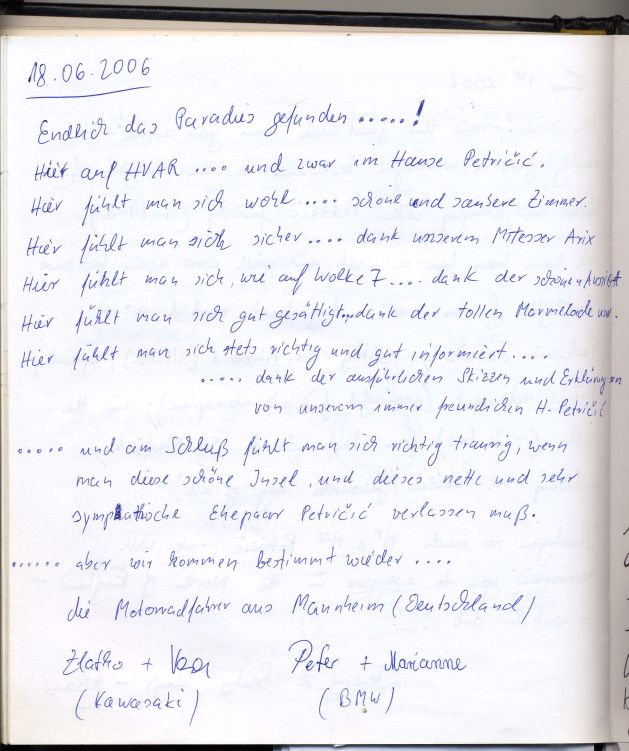 18.06.2006
Endlich das Paradies gefunden .....!
Hier auf HVAR .... und zwar im Hause Petričić.
Hier fühlt man sich wohl .... schöne und saubere Zimmer.
Hier fühlt man sich sicher .... dank unserem Mitesser Arix
Hier fühlt man sich, wie auf Wolke 7 .... dank der schönen Aussicht
Hier fühlt man sich gut gesättigt... dank der tollen Marmelade usw.
Hier fühlt man sich stets richtig und gut informiert ....
..... dank der ausführlichen Skizzen und Erklärungen
von unserem immer freundlichen H. Petričić
..... und am Schluß fühlt man sich richtig traurig, wenn
man diese schöne Insel, und dieses nette und sehr
sympathische Ehepaar Petričić verlassen muß.
...... aber wir kommen bestimmt wieder ....
die Motorradfahrer aus Mannheim (Deutschland)
Zlatko + Peter + Marianne
(Kawasaki) (BMW)